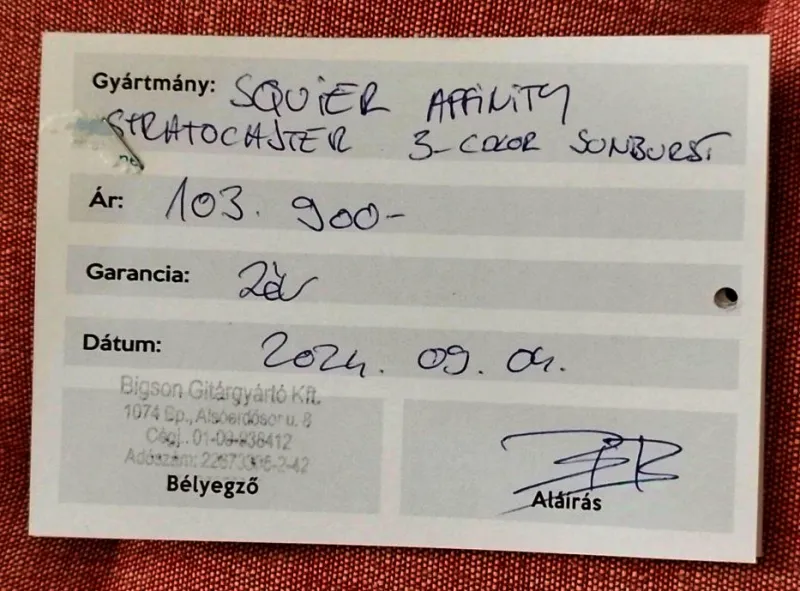 Gyártmány: SQUIER AFFINITY
STRATOCASTER 3-COLOR SUNBURST
Ár: 103.900-
Garancia: 2 év
Dátum: 2024. 09. 04.
Bigson Gitárgyártó Kft.
1074 Bp., Alsóerdősor u. 8
Cégj.: 01-09-938412
Adószám: 22673395-2-42
Bélyegző
Aláírás